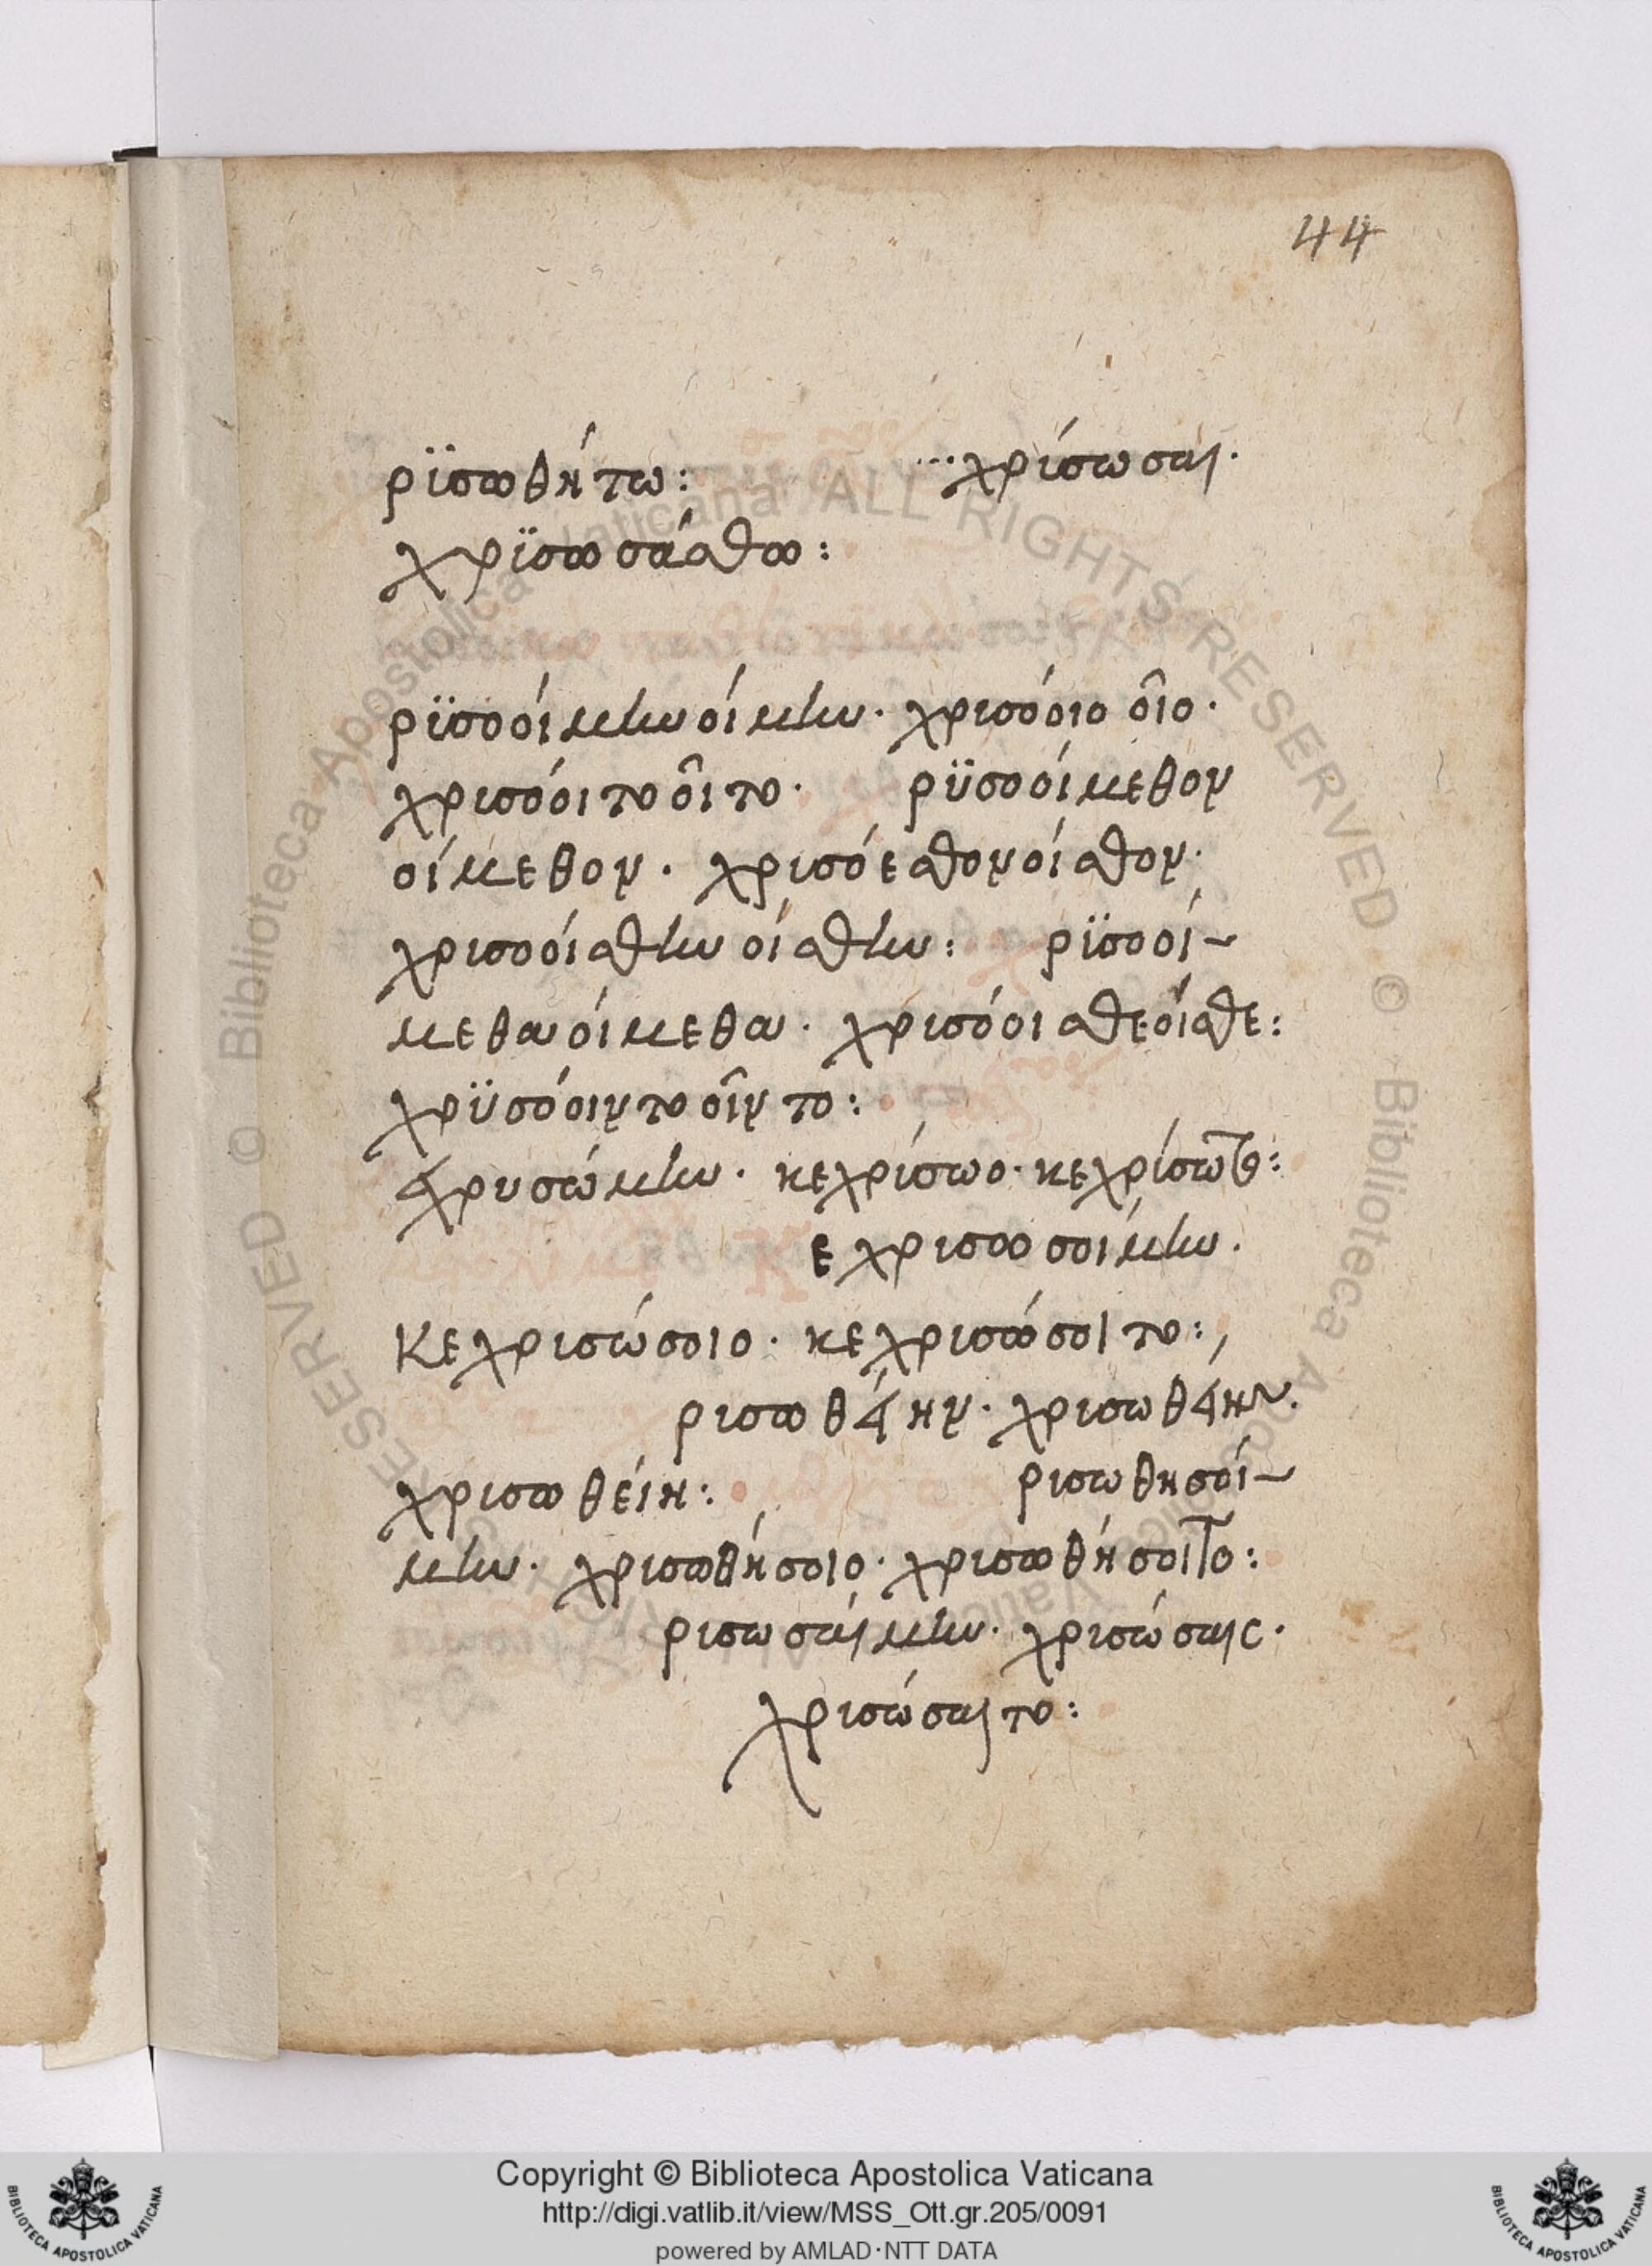 44
ρϊσωθήτω: ...χρίσωσαι.
χρϊσωσάσθω:
ρϊσοοίμην οίμην. χρισόοιο οῖο.
χρισόοιτο οῖτο. ρϋσοοίμεθον
οίμεθον. χρισόεσθον οίσθον.
χρισοοίσθην οίσθην: ρϊσοοί-
μεθα οίμεθα. χρισόοισθε οίσθε:
χρϋσόοιντο οῖντο:
χρυσώμην. κεχρίσωο. κεχρίσωτο:
εχρισωσοίμην.
Κεχρισώσοιο. κεχρισώσοιτο:,
ρισωθείην. χρισωθείην.
χρισωθείη: ρισωθησοί-
μην. χρισωθήσοιο. χρισωθήσοιτο:
ρισωσαίμην. χρισώσαις.
χρισώσαιτο:
Copyright © Biblioteca Apostolica Vaticana
http://digi.vatlib.it/view/MSS_Ott.gr.205/0091
powered by AMLAD·NTT DATA